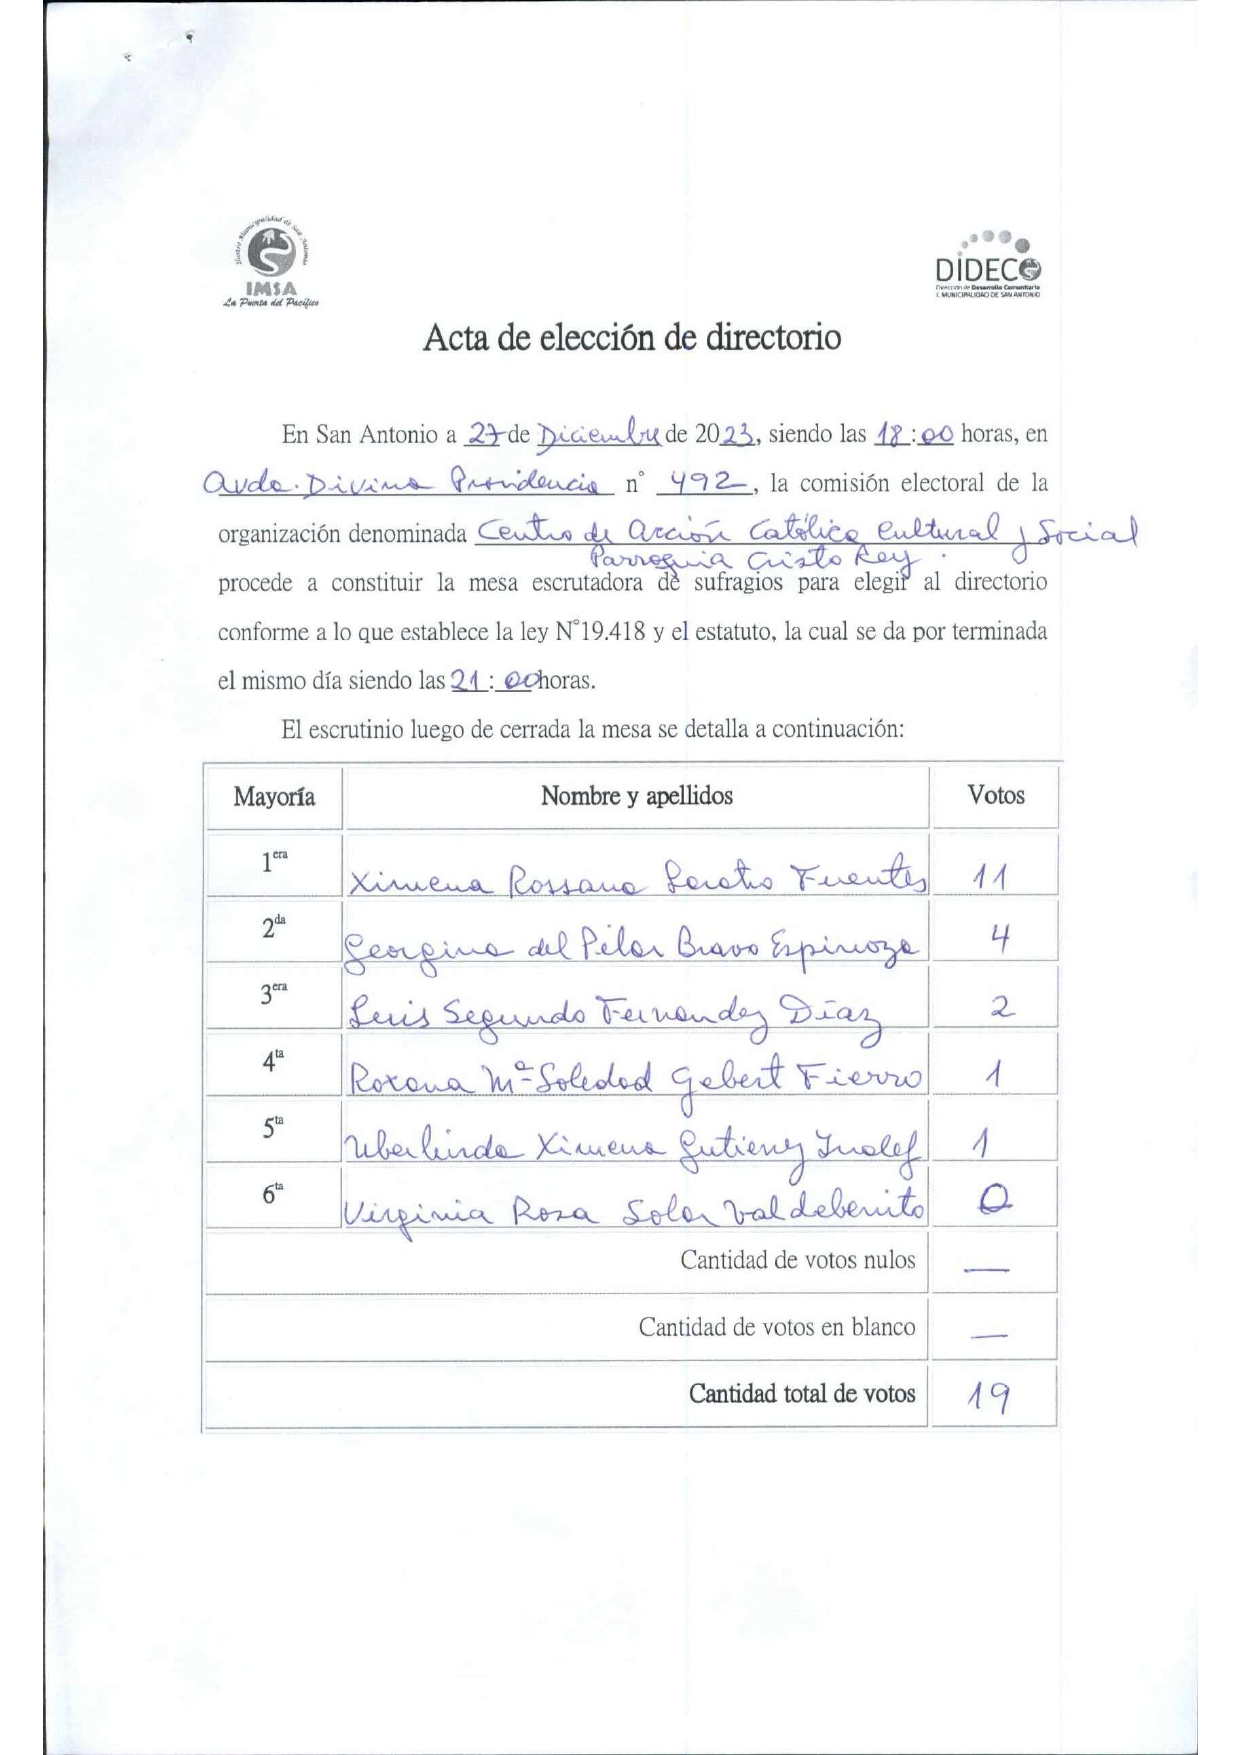 Ilustre Municipalidad de San Antonio
IMSA
La Puerta del Pacífico
DIDECO
Dirección de Desarrollo Comunitario
I. MUNICIPALIDAD DE SAN ANTONIO
Acta de elección de directorio
En San Antonio a 27 de Diciembre de 2023, siendo las 18:00 horas, en
Avda. Divina Providencia n° 492, la comisión electoral de la
organización denominada Centro de Acción Católica Cultural y Social
Parroquia Cristo Rey.
procede a constituir la mesa escrutadora de sufragios para elegir al directorio
conforme a lo que establece la ley N°19.418 y el estatuto, la cual se da por terminada
el mismo día siendo las 21:00 horas.
El escrutinio luego de cerrada la mesa se detalla a continuación:
Mayoría Nombre y apellidos Votos
1era Ximena Rossana Fuentes 11
2da Georgina del Pilar Bravo Espinoza 4
3era Luis Segundo Fernandez Díaz 2
4ta Roxana Mª Soledad Gebert Fierro 1
5ta Uberlinda Ximena Gutierrez 1
6ta Virginia Rosa Solar Valdebenito 0
Cantidad de votos nulos —
Cantidad de votos en blanco —
Cantidad total de votos 19